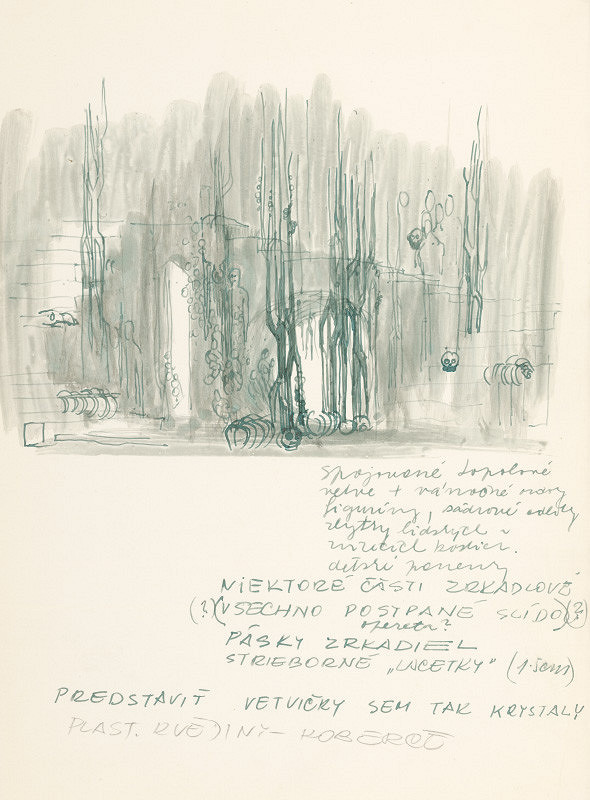 spojované topolové
vetve + vánočné
figuríny, sádrové odlety
zbytky lidských
zvieracích kostier.
dětské panenky
NIEKTORÉ ČÁSTI ZRKADLOVÉ
(?) (VSECHNO POSYPANÉ SLÍDO) (?)
opereta?
PÁSKY ZRKADIEL
STRIEBORNÉ „LACETKY" (1·5cm)
PREDSTAVIŤ VETVIČKY SEM TAK KRYSTALY
PLAST. KVĚTINY - KOBERCE